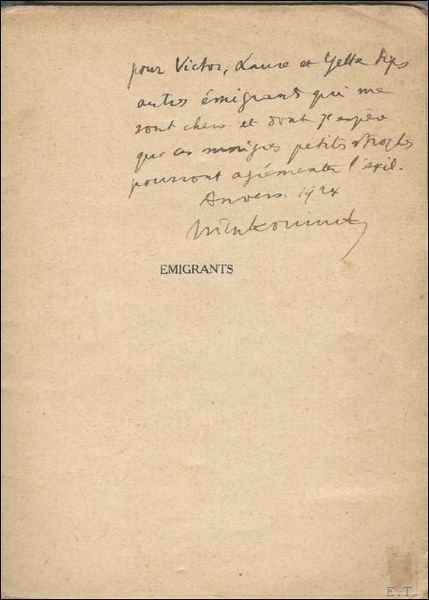 pour Victor, Laure et Yetta
autres émigrants qui me
sont chers et dont j'espère
que ces maigres petites strophes
pourront agrémenter l'exil.
Anvers. 1924
EMIGRANTS
E.T.